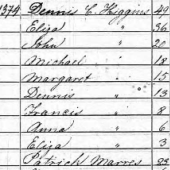 1374 Dennis C. Higgins 49
Eliza " 36
John " 20
Michael " 18
Margaret " 15
Dennis " 13
Francis " 8
Anna " 6
Eliza " 3
Patrick